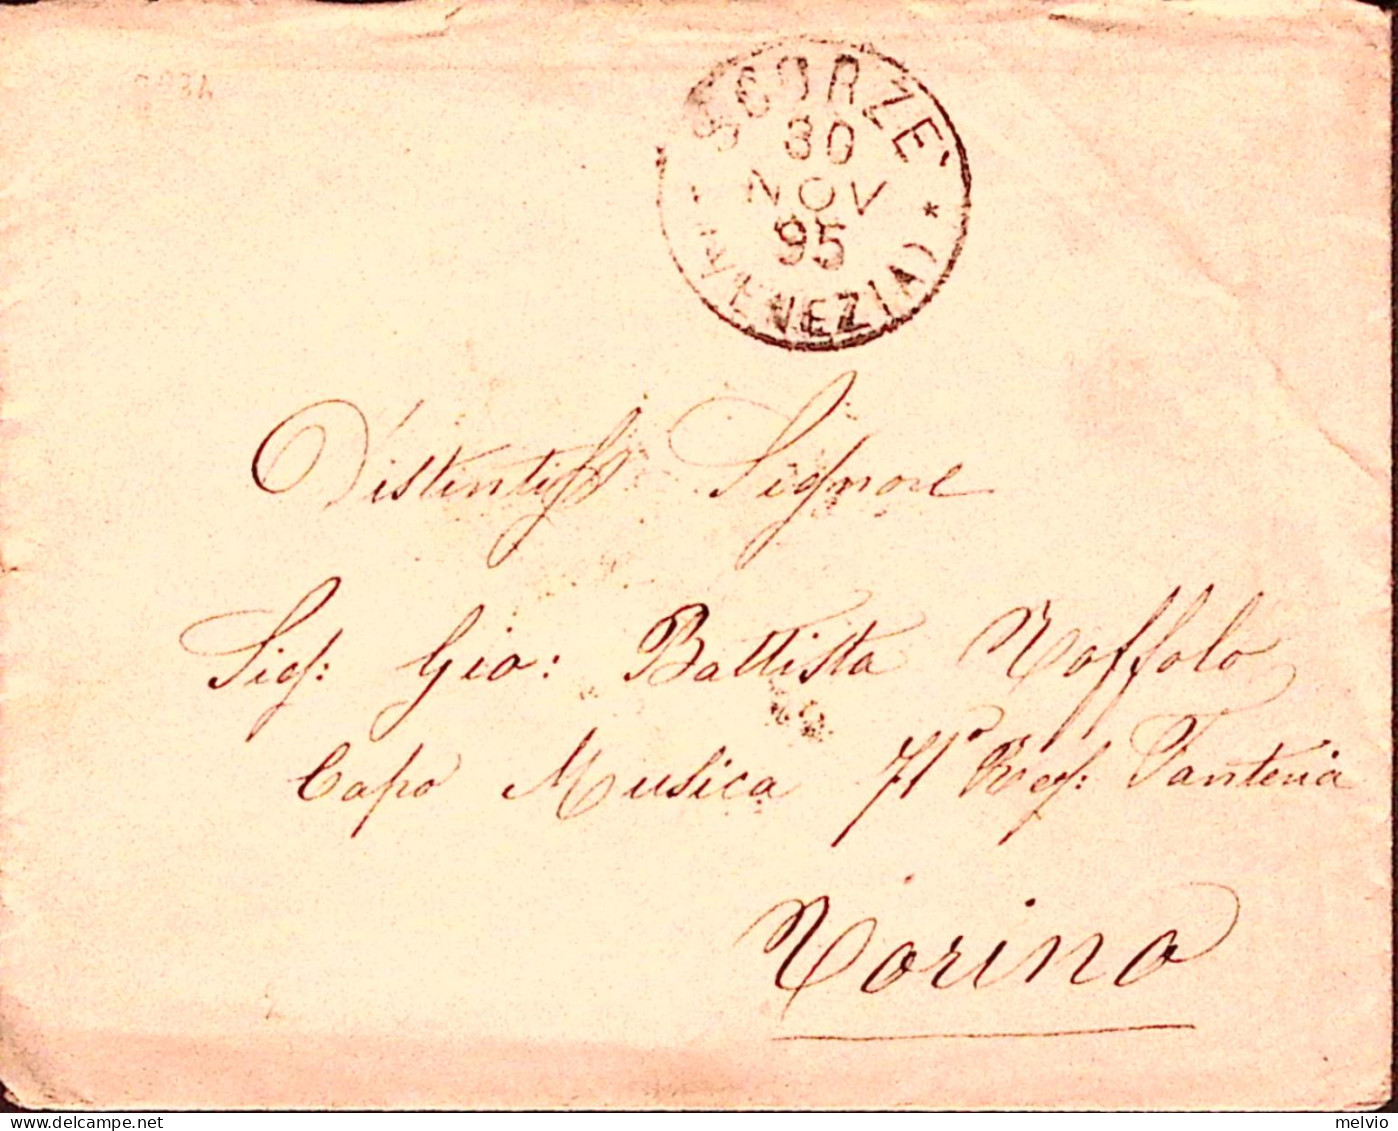 SCORZÈ
30
NOV
95
(VENEZIA) *
Distintiss Signore
Sig: Gio: Battista Toffolo
Capo Musica 71° Reg: Fanteria
Torino
melvio